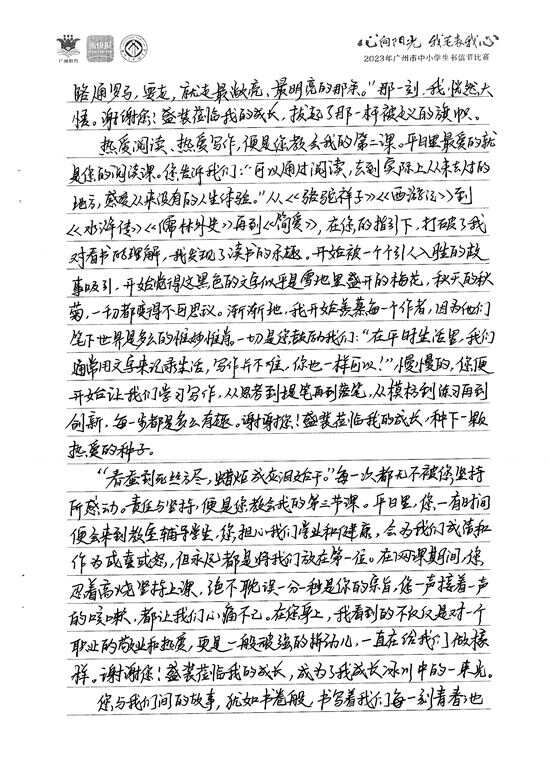 广州教育
心向阳光 我笔表我心
2023年广州市中小学生书信节比赛
路通罗马，要走，就走最澈底、最明亮的那条。”那一刻，我恍然大
悟。谢谢您！盛装莅临我的成长，拔起了那一杆被定义的旗帜。
热爱阅读、热爱写作，便是您教会我的第二课。平日里最爱的就
是您的阅读课。您告诉我们：“可以通过阅读，去到实际上从未去过的
地方，感受从来没有的人生体验。”从《骆驼祥子》《西游记》到
《水浒传》《儒林外史》再到《简爱》，在您的指引下，打破了我
对看书的理解，我发现了读书的乐趣。开始被一个个引人入胜的故
事吸引，开始觉得这黑色的文字似乎是雪地里盛开的梅花，秋天的秋
菊，一切都变得不可思议。渐渐地，我开始羡慕每一个作者，因为他们
笔下世界是多么的惟妙惟肖。一切是您鼓励我们：“在平时生活里，我们
通常用文字来记录生活，写作并不难，你也一样可以！”慢慢的，您便
开始让我们学习写作，从思考到提笔再到落笔，从模仿到练习再到
创新，每一步都是多么有趣。谢谢您！盛装莅临我的成长，种下一颗
热爱的种子。
“春蚕到死丝方尽，蜡炬成灰泪始干。”每一次都无不被您坚持
所感动。责任与坚持，便是您教会我的第三节课。平日里，您一有时间
便会来到教室辅导学生，您担心我们学业和健康，会为我们成绩和
作为或喜或怒，但永远都是将我们放在第一位。在网课期间，您
忍着高烧坚持上课，绝不耽误一分一秒是你的宗旨，您一声接着一声
的咳嗽，都让我们心痛不已。在您身上，我看到的不仅仅是对一个
职业的敬业和热爱，更是一般顽强的拼劲儿，一直在给我们做榜
样。谢谢您！盛装莅临我的成长，成为了我成长冰川中的一束光。
您与我们间的故事，犹如书卷般，书写着我们每一刻青春也